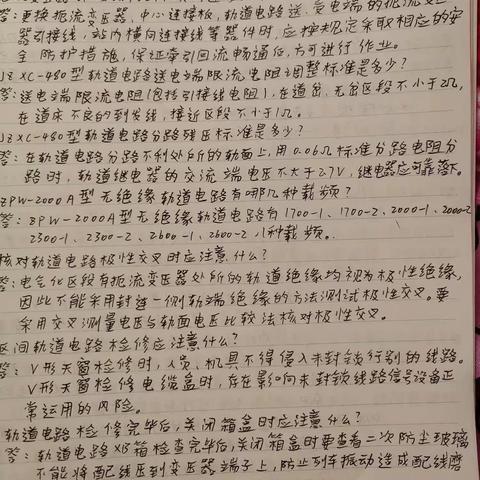 答:更换扼流变压器、中心连接板,轨道电路送、受电端的扼流变压
器引接线,站内横向连接线等器件时,应按规定采取相应的安
全防护措施,保证牵引回流畅通后,方可进行作业。
JZXC-480型轨道电路送电端限流电阻调整标准是多少?
答:送电端限流电阻(包括引接线电阻),在道岔、无岔区段不小于2Ω,
在道床不良的到发线,接近区段不小于1Ω。
JZXC-480型轨道电路分路残压标准是多少?
答:在轨道电路分路不利处所的轨面上,用0.06Ω标准分路电阻分
路时,轨道继电器的交流端电压不大于2.7V,继电器应可靠落下。
ZPW-2000A型无绝缘轨道电路有哪几种载频?
答:ZPW-2000A型无绝缘轨道电路有1700-1、1700-2、2000-1、2000-2
2300-1、2300-2、2600-1、2600-2 八种载频。
核对轨道电路极性交叉时应注意什么?
答:电气化区段有扼流变压器处所的轨道绝缘均视为极性绝缘,
因此不能采用封连一侧轨端绝缘的方法测试极性交叉。要
采用交叉测量电压与轨面电压比较法核对极性交叉。
区间轨道电路检修应注意什么?
答:V形天窗检修时,人员、机具不得侵入未封锁行别的线路。
V形天窗检修电缆盒时,存在影响未封锁线路信号设备正
常运用的风险。
轨道电路检修完毕后,关闭箱盒时应注意什么?
答:轨道电路XB箱检查完毕后,关闭箱盒时要查看二次防尘玻璃
不能将配线压到变压器端子上,防止列车振动造成配线磨